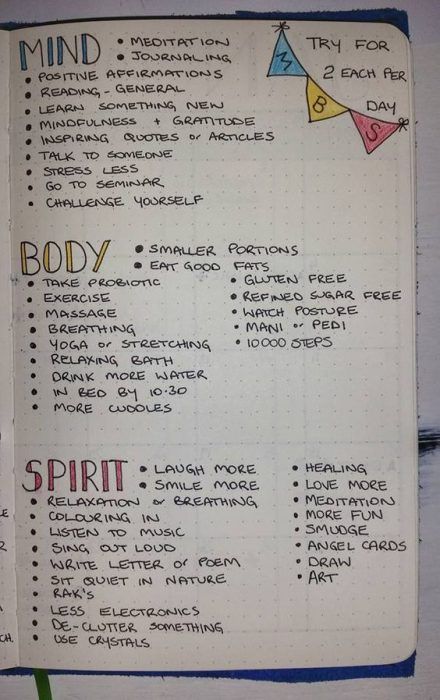 MIND
• MEDITATION
• JOURNALING
• POSITIVE AFFIRMATIONS
• READING - GENERAL
• LEARN SOMETHING NEW
• MINDFULNESS + GRATITUDE
• INSPIRING QUOTES or ARTICLES
• TALK TO SOMEONE
• STRESS LESS
• GO TO SEMINAR
• CHALLENGE YOURSELF
TRY FOR
2 EACH PER
DAY
M
B
S
BODY
• SMALLER PORTIONS
• EAT GOOD FATS
• TAKE PROBIOTIC
• EXERCISE
• MASSAGE
• BREATHING
• YOGA or STRETCHING
• RELAXING BATH
• DRINK MORE WATER
• IN BED BY 10.30
• MORE CUDDLES
• GLUTEN FREE
• REFINED SUGAR FREE
• WATCH POSTURE
• MANI or PEDI
• 10000 STEPS
SPIRIT
• LAUGH MORE
• SMILE MORE
• RELAXATION or BREATHING
• COLOURING IN
• LISTEN TO MUSIC
• SING OUT LOUD
• WRITE LETTER or POEM
• SIT QUIET IN NATURE
• RAK'S
• LESS ELECTRONICS
• DE-CLUTTER SOMETHING
• USE CRYSTALS
• HEALING
• LOVE MORE
• MEDITATION
• MORE FUN
• SMUDGE
• ANGEL CARDS
• DRAW
• ART